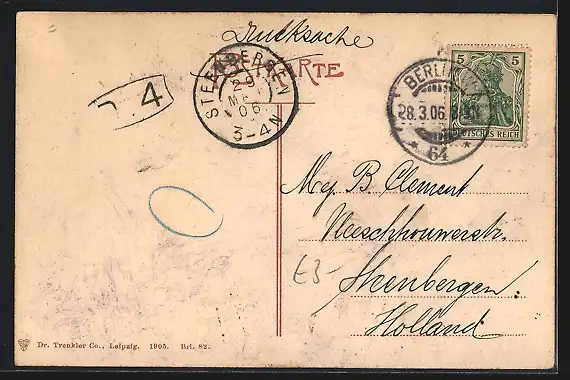 Drucksache
POSTKARTE
STEENBERGEN
29
MRT
06
3-4N
4
BERLIN W
28.3.06.
* 64 *
5 5
DEUTSCHES REICH
Mej. B. Clement
Vleeschhouwerstr.
Steenbergen.
Holland
E3-
Dr. Trenkler Co., Leipzig. 1905. Brl. 82.